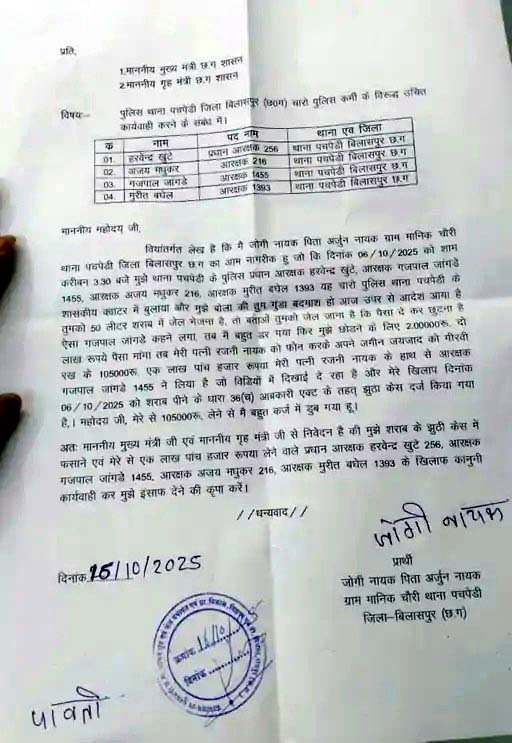 प्रति,
1.माननीय मुख्य मंत्री छ.ग शासन
2.माननीय गृह मंत्री छ.ग शासन
विषयः– पुलिस थाना पचपेडी जिला बिलासपुर (छ0ग) चारो पुलिस कर्मी के विरुद्ध उचित
कार्यवाही करने के संबंध में।
क नाम पद नाम थाना एवं जिला
01. हरवेन्द्र खुटे प्रधान आरक्षक 256 थाना पचपेडी बिलासपुर छ.ग
02. अजय मधुकर आरक्षक 216 थाना पचपेडी बिलासपुर छ.ग
03. गजपाल जांगडे आरक्षक 1455 थाना पचपेडी बिलासपुर छ.ग
04. मुरीत बघेल आरक्षक 1393 थाना पचपेडी बिलासपुर छ.ग
माननीय महोदय जी,
वियांतर्गत लेख है कि मै जोगी नायक पिता अर्जुन नायक ग्राम मानिक चौरी
थाना पचपेडी जिला बिलासपुर छ.ग का आम नागरीक हु जो कि दिनांक 06/10/2025 को शाम
करीबन 3.30 बजे मुझे थाना पचपेडी के पुलिस प्रधान आरक्षक हरवेन्द्र खुटे, आरक्षक गजपाल जांगडे
1455, आरक्षक अजय मधुकर 216, आरक्षक मुरीत बघेल 1393 यह चारो पुलिस थाना पचपेडी के
शासकीय क्वाटर में बुलाया और मुझे बोला की तुम गुडा बदमाश हो आज उपर से आदेश आया है
तुमको 50 लीटर शराब में जेल भेजना है, तो बताओं तुमको जेल जाना है कि पैसा दे कर छुटना है
ऐसा गजपाल जांगडे कहने लगा, तब मैं बहुत डर गया फिर मुझे छोडने के लिए 2.00000रू. दो
लाख रूपये पैसा मांगा तब मेरी पत्नी रजनी नायक को फोन करके अपने जगीन जयजाद को गीरवी
रख के 105000रू. एक लाख पांच हजार रूपया मेरी पत्नी रजनी नायक के हाथ से आरक्षक
गजपाल जांगडे 1455 ने लिया है जो विडियों में दिखाई दे रहा है और मेरे खिलाप दिनांक
06/10/2025 को शराब पीने के धारा 36(च) आबकारी एक्ट के तहत् झुठा केस दर्ज किया गया
है,। महोदय जी, मेरे से 105000रू. लेने से मै बहुत कर्ज में डुब गया हू।
अतः माननीय मुख्य मंत्री जी एवं माननीय गृह मंत्री जी से निवेदन है की मुझे शराब के झुठी केस में
फसाने एवं मेरे से एक लाख पांच हजार रूपया लेने वाले प्रधान आरक्षक हरवेन्द्र खुटे 256, आरक्षक
गजपाल जांगडे 1455, आरक्षक अजय मधुकर 216, आरक्षक मुरीत बघेल 1393 के खिलाफ कानुनी
कार्यवाही कर मुझे इंसाफ देने की कृपा करें।
//धन्यवाद//
जोगी नायक
दिनांक 15/10/2025
प्रार्थी
जोगी नायक पिता अर्जुन नायक
ग्राम मानिक चौरी थाना पचपेडी
जिला–बिलासपुर (छ.ग)
क्रमांक
दिनांक
पावती